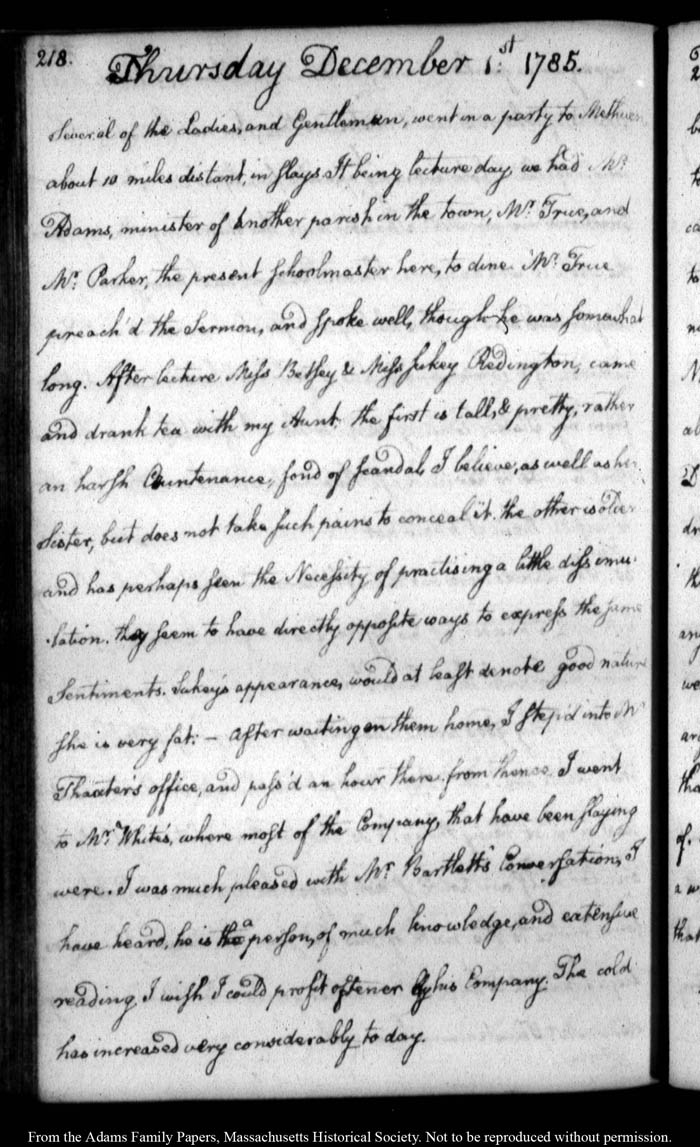 218.
Thursday December 1st 1785.
Several of the Ladies, and Gentlemen, went in a party to Methuen
about 10 miles distant, in slays It being lecture day, we had Mr.
Adams, minister of another parish in the town, Mr. True, and
Mr. Parker, the present schoolmaster here, to dine. Mr. True
preach'd the Sermon, and spoke well, though he was somewhat
long. After lecture Miss Betsey & Miss Sukey Redington, came
and drank tea with my Aunt. the first is tall, & pretty, rather
an harsh Countenance, fond of scandal I believe, as well as her
Sister, but does not take such pains to conceal it. the other is older
and has perhaps seen the Necessity of practising a little dissimu-
-lation. they seem to have directly opposite ways to express the same
Sentiments. Sukey's appearance, would at least denote good nature
she is very fat: — After waiting on them home, I step'd into Mr
Thaxter's office, and pass'd an hour there. from thence I went
to Mr. White's, where most of the Company, that have been slaying
were. I was much pleased with Mr. Bartlett's Conversation, I
have heard, he is the a person, of much knowledge, and extensive
reading, I wish I could profit oftener by his Company. The cold
has increased very considerably to day.
From the Adams Family Papers, Massachusetts Historical Society. Not to be reproduced without permission.